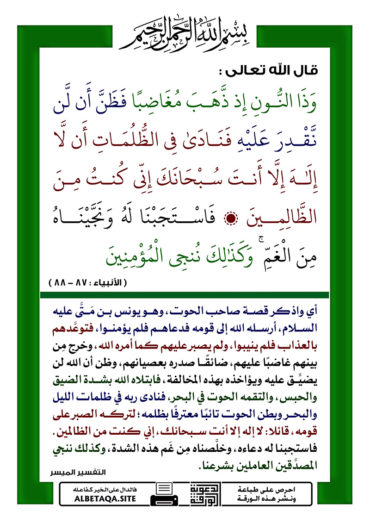 بسم الله الرحمن الرحيم
قال الله تعالى :
وَذَا النُّونِ إِذ ذَّهَبَ مُغَاضِبًا فَظَنَّ أَن لَّن
نَّقْدِرَ عَلَيْهِ فَنَادَىٰ فِي الظُّلُمَاتِ أَن لَّا
إِلَٰهَ إِلَّا أَنتَ سُبْحَانَكَ إِنِّي كُنتُ مِنَ
الظَّالِمِينَ ۞ فَاسْتَجَبْنَا لَهُ وَنَجَّيْنَاهُ
مِنَ الْغَمِّ ۚ وَكَذَٰلِكَ نُنجِي الْمُؤْمِنِينَ
( الأنبياء : ٨٧ - ٨٨ )
أي واذكر قصة صاحب الحوت، وهو يونس بن مَتَّى عليه
السلام، أرسله الله إلى قومه فدعاهم فلم يؤمنوا، فتوعَّدهم
بالعذاب فلم ينيبوا، ولم يصبر عليهم كما أمره الله، وخرج مِن
بينهم غاضبًا عليهم، ضائقًا صدره بعصيانهم، وظن أن الله لن
يضيِّق عليه ويؤاخذه بهذه المخالفة، فابتلاه الله بشدة الضيق
والحبس، والتقمه الحوت في البحر، فنادى ربه في ظلمات الليل
والبحر وبطن الحوت تائبًا معترفًا بظلمه؛ لتركه الصبر على
قومه، قائلا: لا إله إلا أنت سبحانك، إني كنت من الظالمين .
فاستجبنا له دعاءه، وخلَّصناه مِن غَم هذه الشدة، وكذلك ننجي
المصدِّقين العاملين بشرعنا.
التفسير الميسر
احرص على طباعة
ونشر هذه الورقة
الورقة
فالدال على الخير كفاعله
ALBETAQA.SITE